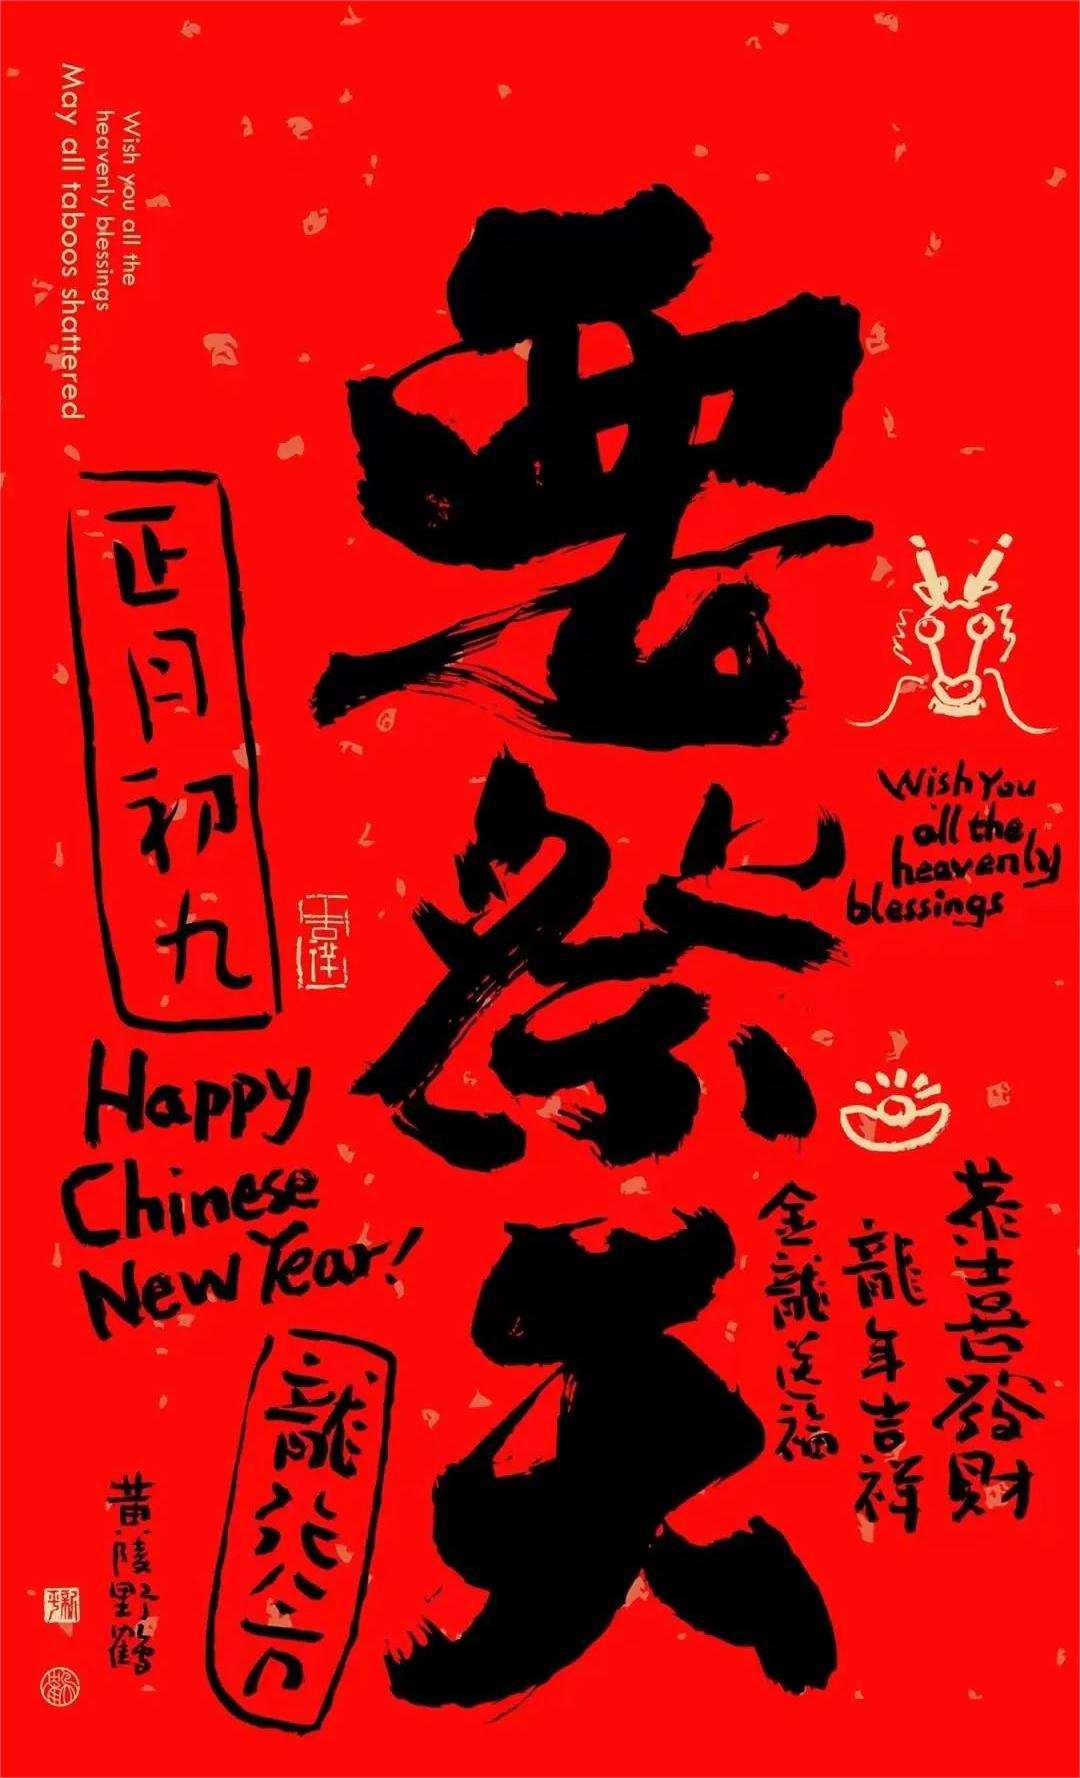 要祭天
Wish you all the
heavenly blessings
May all taboos shattered
正月初九
吉祥
Wish You
all the
heavenly
blessings
Happy
Chinese
New Year!
恭喜發財
龍年吉祥
金龍送福
龍行八方
黄陵野鶴